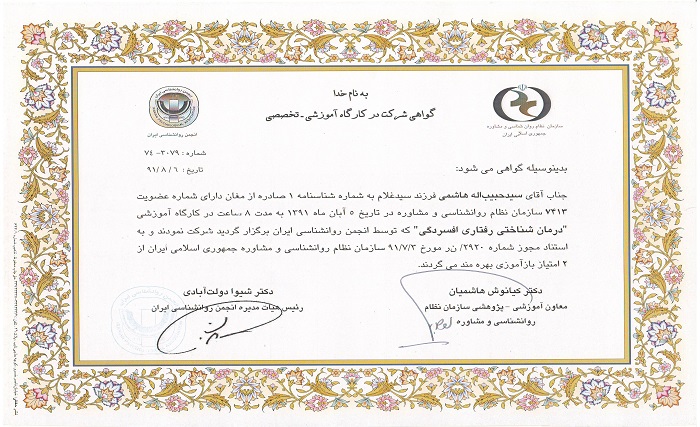 به نام خدا
گواهی شرکت در کارگاه آموزشی - تخصصی
سازمان نظام روان شناسی و مشاوره
جمهوری اسلامی ایران
انجمن روانشناسی ایران
شماره : ۳۰۷۹-۷۴
تاریخ : ۹۱/۸/۶
بدینوسیله گواهی می شود:
جناب آقای سیدحبیب‌اله هاشمی فرزند سیدغلام به شماره شناسنامه ۱ صادره از مغان دارای شماره عضویت
۷۴۱۳ سازمان نظام روانشناسی و مشاوره در تاریخ ۵ آبان ماه ۱۳۹۱ به مدت ۸ ساعت در کارگاه آموزشی
"درمان شناختی رفتاری افسردگی" که توسط انجمن روانشناسی ایران برگزار گردید شرکت نمودند و به
استناد مجوز شماره ۲۹۲۰/ن‌ر مورخ ۹۱/۷/۳ سازمان نظام روانشناسی و مشاوره جمهوری اسلامی ایران از
۲ امتیاز بازآموزی بهره مند می گردند.
دکتر کیانوش هاشمیان
معاون آموزشی - پژوهشی سازمان نظام
روانشناسی و مشاوره
دکتر شیوا دولت‌آبادی
رئیس هیات مدیره انجمن روانشناسی ایران